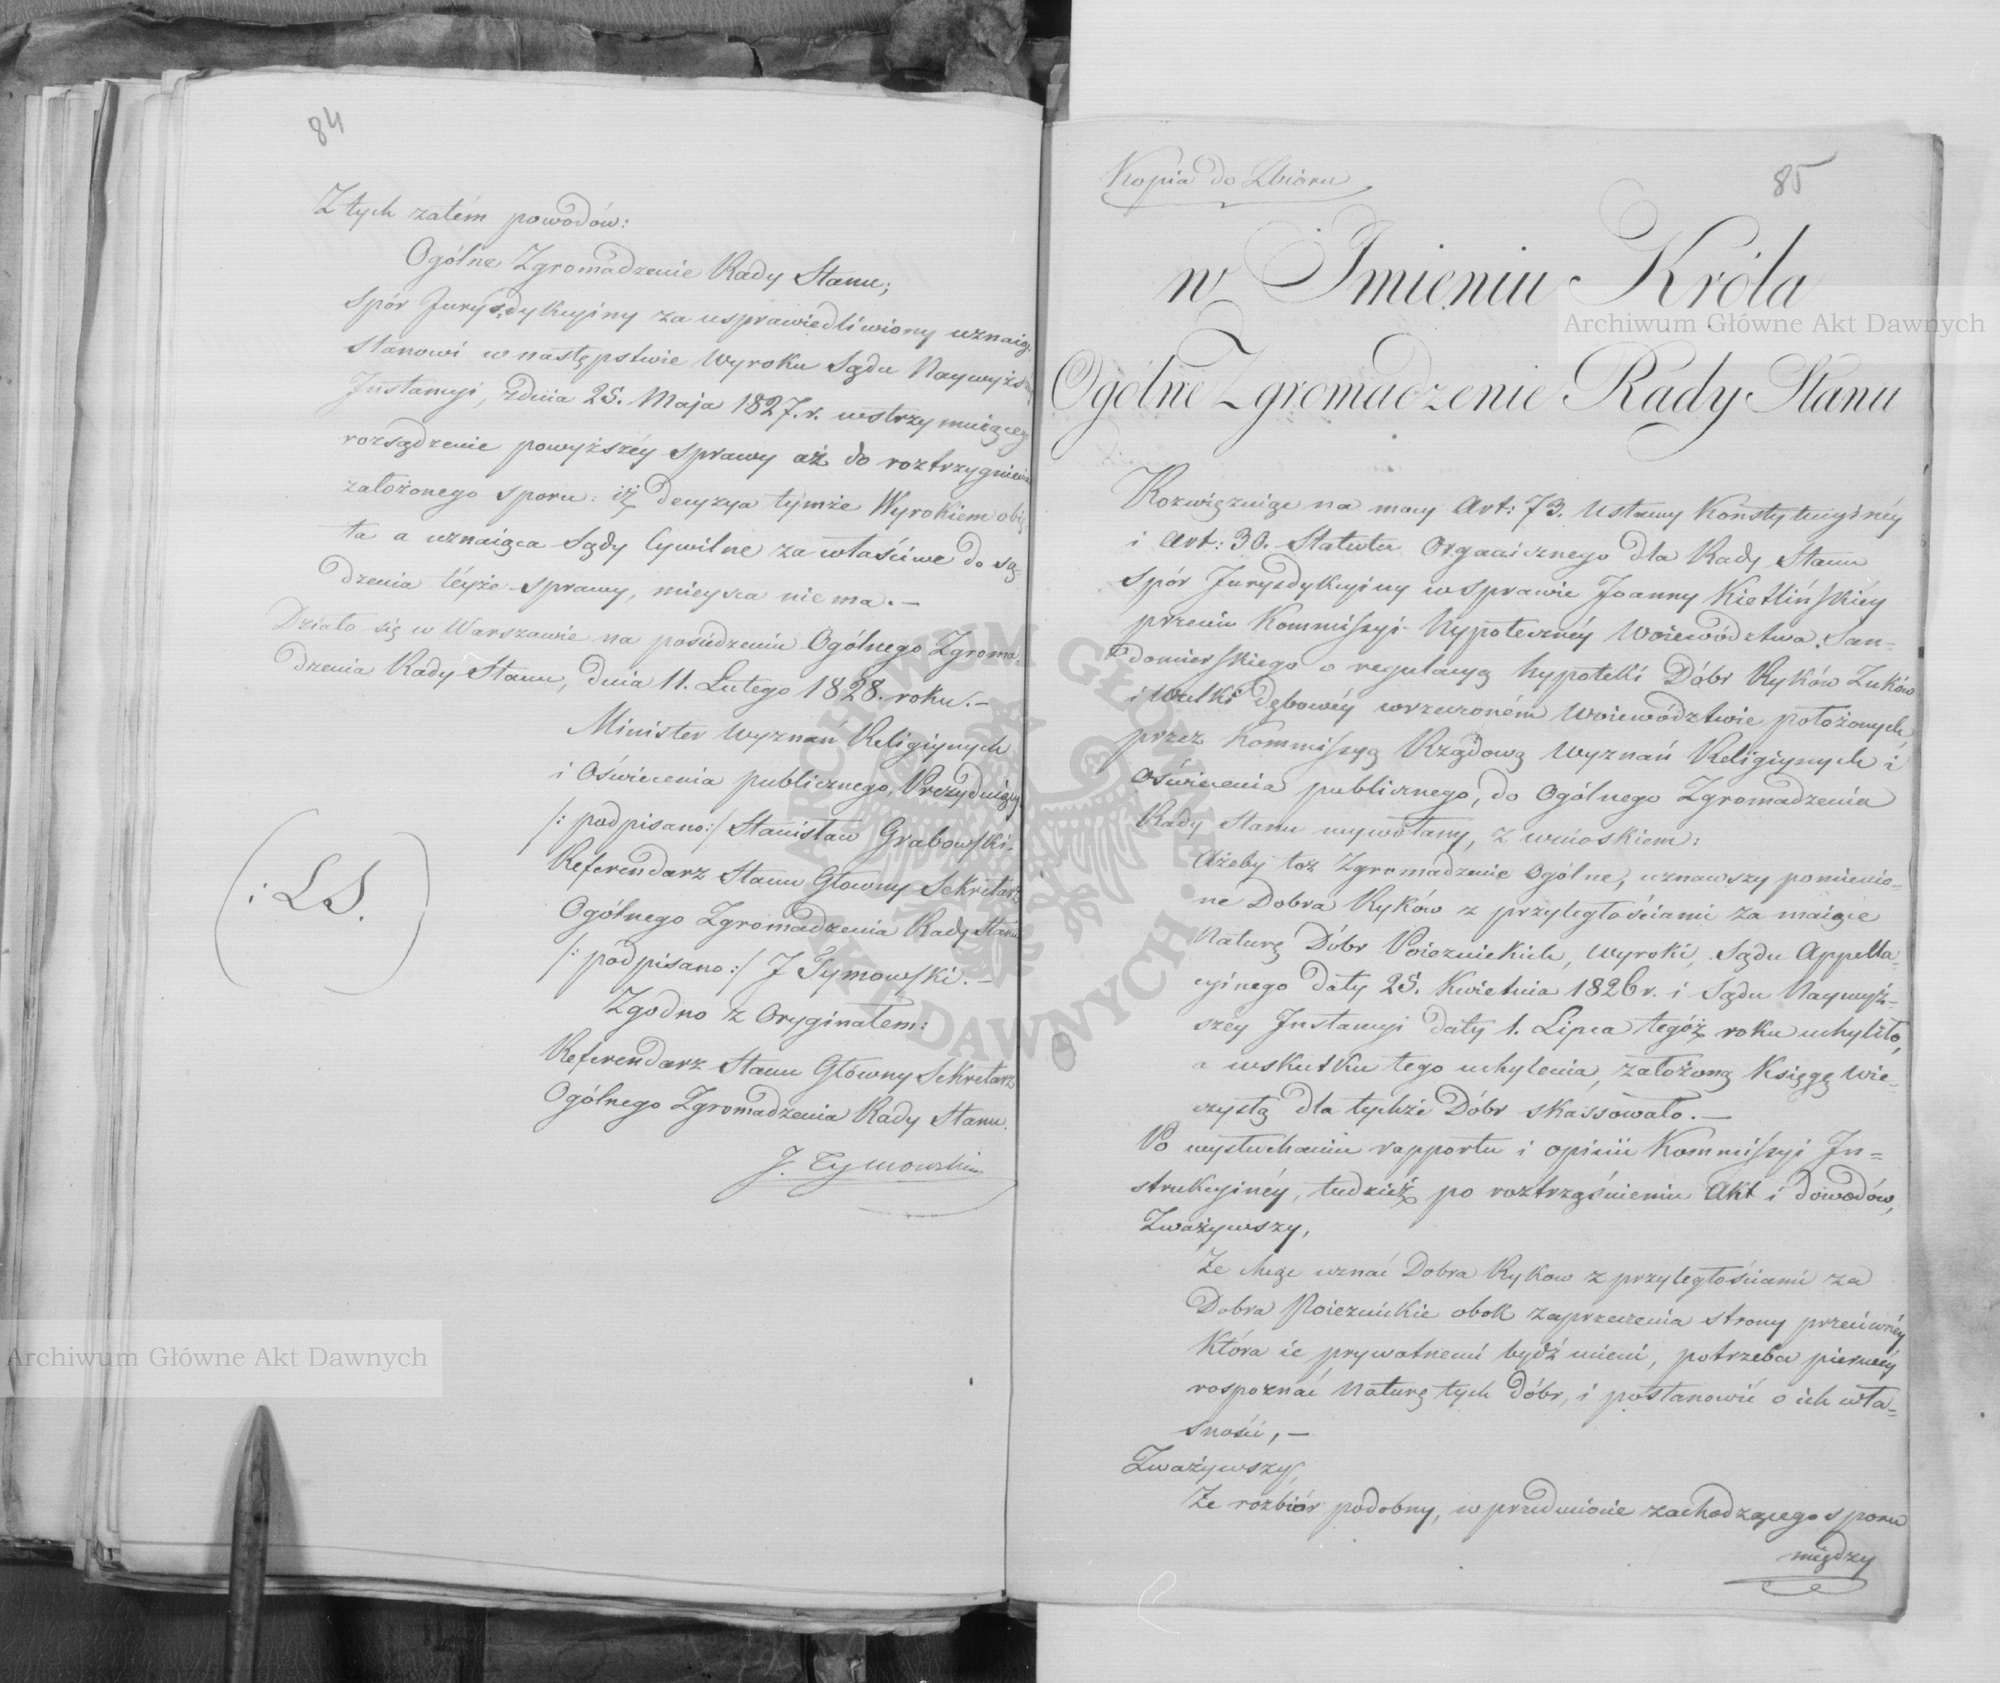 84
Z tych zatém powodów:
Ogólne Zgromadzenie Rady Stanu;
Spór Jurysdykcyiny za usprawiedliwiony uznaiąc
stanowi w następstwie Wyroku Sądu Naywyższéy
Instancyi, z dnia 25. Maja 1827. r. wstrzymuiącego
rozsądzenie powyższéy sprawy aż do roztrzygnienia
założonego sporu: iż decyzya tymże Wyrokiem obię
ta a uznaiąca Sądy Cywilne za właściwe do są-
dzenia téyże sprawy, mieysca nie ma. —
Działo się w Warszawie na posiedzeniu Ogólnego Zgroma-
dzenia Rady Stanu, dnia 11. Lutego 1828. roku. —
Minister Wyznań Religiynych
i Oświecenia publicznego, Prezyduiący
/: podpisano :/ Stanisław Grabowski.
Referendarz Stanu Głowny Sekretarz
Ogólnego Zgromadzenia Rady Stanu
/: podpisano :/ J Tymowski. —
(: L S.)
Zgodno z Oryginałem:
Referendarz Stanu Główny Sekretarz
Ogólnego Zgromadzenia Rady Stanu.
J. Tymowski
Kopia do Zbioru
85
w Imieniu Króla
Ogólne Zgromadzenie Rady Stanu
Rozwiązuiąc na mocy Art: 73. Ustawy Konstytucyinéy
i Art: 30. Statutu Organicznego dla Rady Stanu
spór Jurysdykcyiny w sprawie Joanny Kietlińskiéy
przeciw Kommissyi Hypotecznéy Woiewództwa San-
domierskiego o regulacyą hypoteki Dóbr Ryków Żuków
i Wulki Dębowéy w rzeczoném Woiewództwie położonych
przez Kommissyą Rządową Wyznań Religiynych i
oświecenia publicznego, do Ogólnego Zgromadzenia
Rady Stanu wywołany, z wnioskiem:
Ażeby toż Zgromadzenie Ogólne, uznawszy pomienio-
ne Dobra Ryków z przyległościami za maiące
Naturę Dóbr Poiezuickich, wyroki, Sądu Appella-
cyinego daty 25. Kwietnia 1826 r. i Sądu Naywyż-
szey Instancyi daty 1. Lipca tegóż roku uchyliło,
a wskutku tego uchylenia, założoną Księgę Wie-
czystą dla tychże Dóbr skassowało. —
Po wysłuchaniu rapportu i opinii Kommissyi In-
strukcyinéy, tudzież po roztrząśnieniu Akt i dowodów,
Zważywszy,
Że chcąc uznać Dobra Rykow z przyległościami za
Dobra Poiezuickie obok zaprzeczenia strony przeciwnéy
Która ie prywatnemi bydź mieni, potrzeba pierwéy
rospoznać Naturę tych dóbr, i postanowić o ich wła-
sności, —
Zważywszy,
Że rozbiór podobny, w przedmiocie zachodzącego sporu
między
Archiwum Główne Akt Dawnych
Archiwum Główne Akt Dawnych
ARCHIWUM GŁÓWNE AKT DAWNYCH